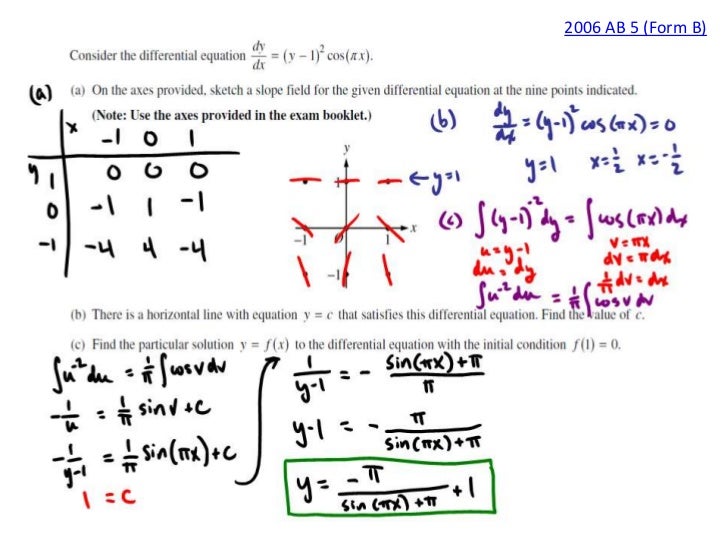 2006 AB 5 (Form B)
Consider the differential equation dy/dx = (y – 1)² cos(πx).
(a) (a) On the axes provided, sketch a slope field for the given differential equation at the nine points indicated.
(Note: Use the axes provided in the exam booklet.)
x -1 0 1
y 1 0 0 0
0 -1 1 -1
-1 -4 4 -4
y
x
–1 1
–1
← y=1
(b) dy/dx = (y-1)² cos(πx) = 0
y=1 x=½ x=-½
(c) ∫(y-1)⁻² dy = ∫cos(πx)dx
u=y-1 v=πx
du=dy dv=πdx
1/π dv=dx
∫u⁻² du = 1/π ∫cos v dv
(b) There is a horizontal line with equation y = c that satisfies this differential equation. Find the value of c.
(c) Find the particular solution y = f(x) to the differential equation with the initial condition f(1) = 0.
∫u⁻² du = 1/π ∫cos v dv
-1/u = 1/π sin v + C
-1/(y-1) = 1/π sin(πx) + C
1 = C
1/(y-1) = - (sin(πx)+π)/π
y-1 = - π/(sin(πx)+π)
y = -π/(sin(πx)+π) + 1